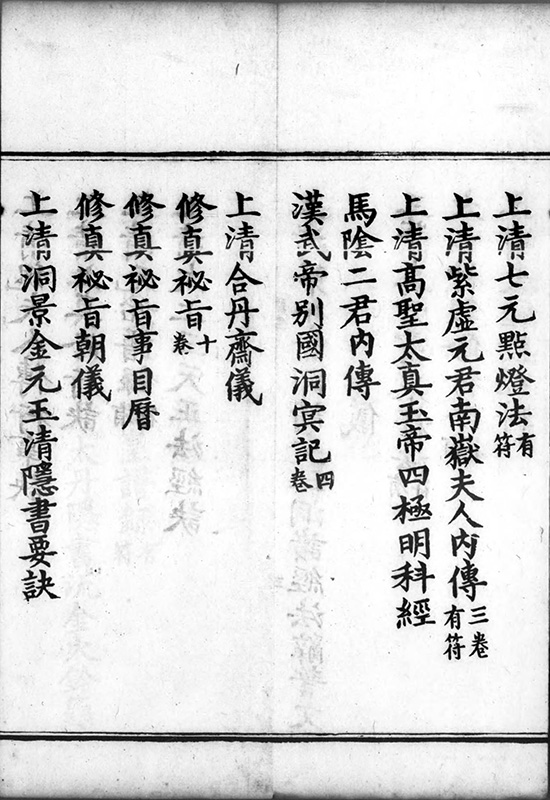 上清七元㸃燈法有符
上清紫虛元君南嶽夫人內傳三卷有符
上清髙聖太真玉帝四極明科經
馬陰二君內傳
漢武帝別國洞冥記四卷
上清合丹齋儀
修真祕旨十卷
修真祕旨事目曆
修真祕旨朝儀
上清洞景金元玉清隱書要訣